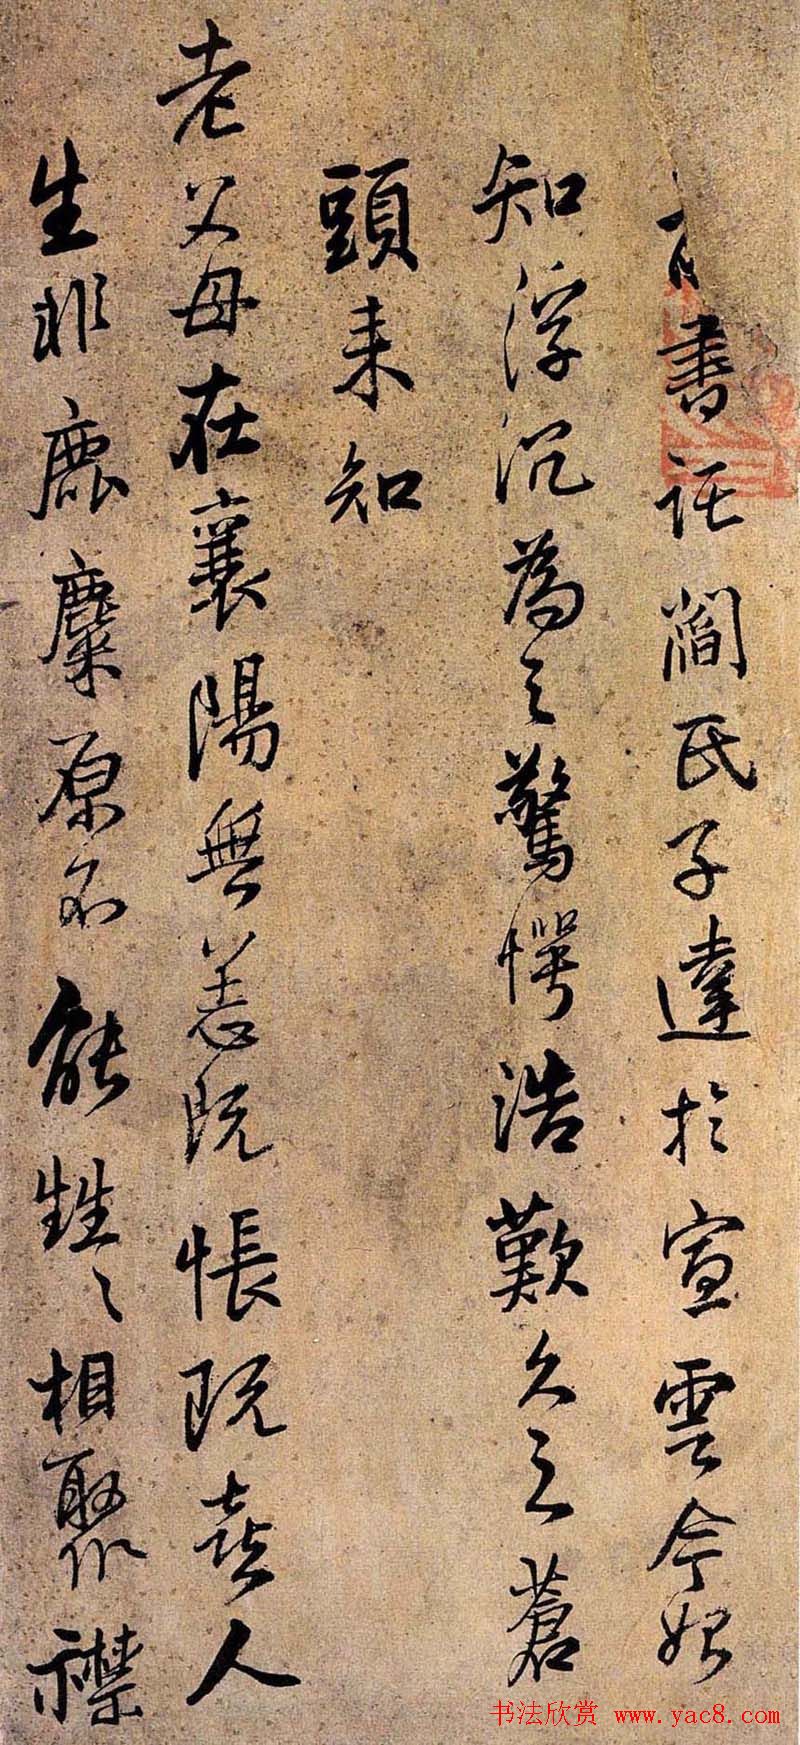 書託閻氏子達於宣雲今始
知浮沉為之驚愕浩歎久之蒼
頭来知
老父母在襄陽無恙既悵既喜人
生非鹿麋原不能甡〻相聚襟
书法欣赏 www.yac8.com